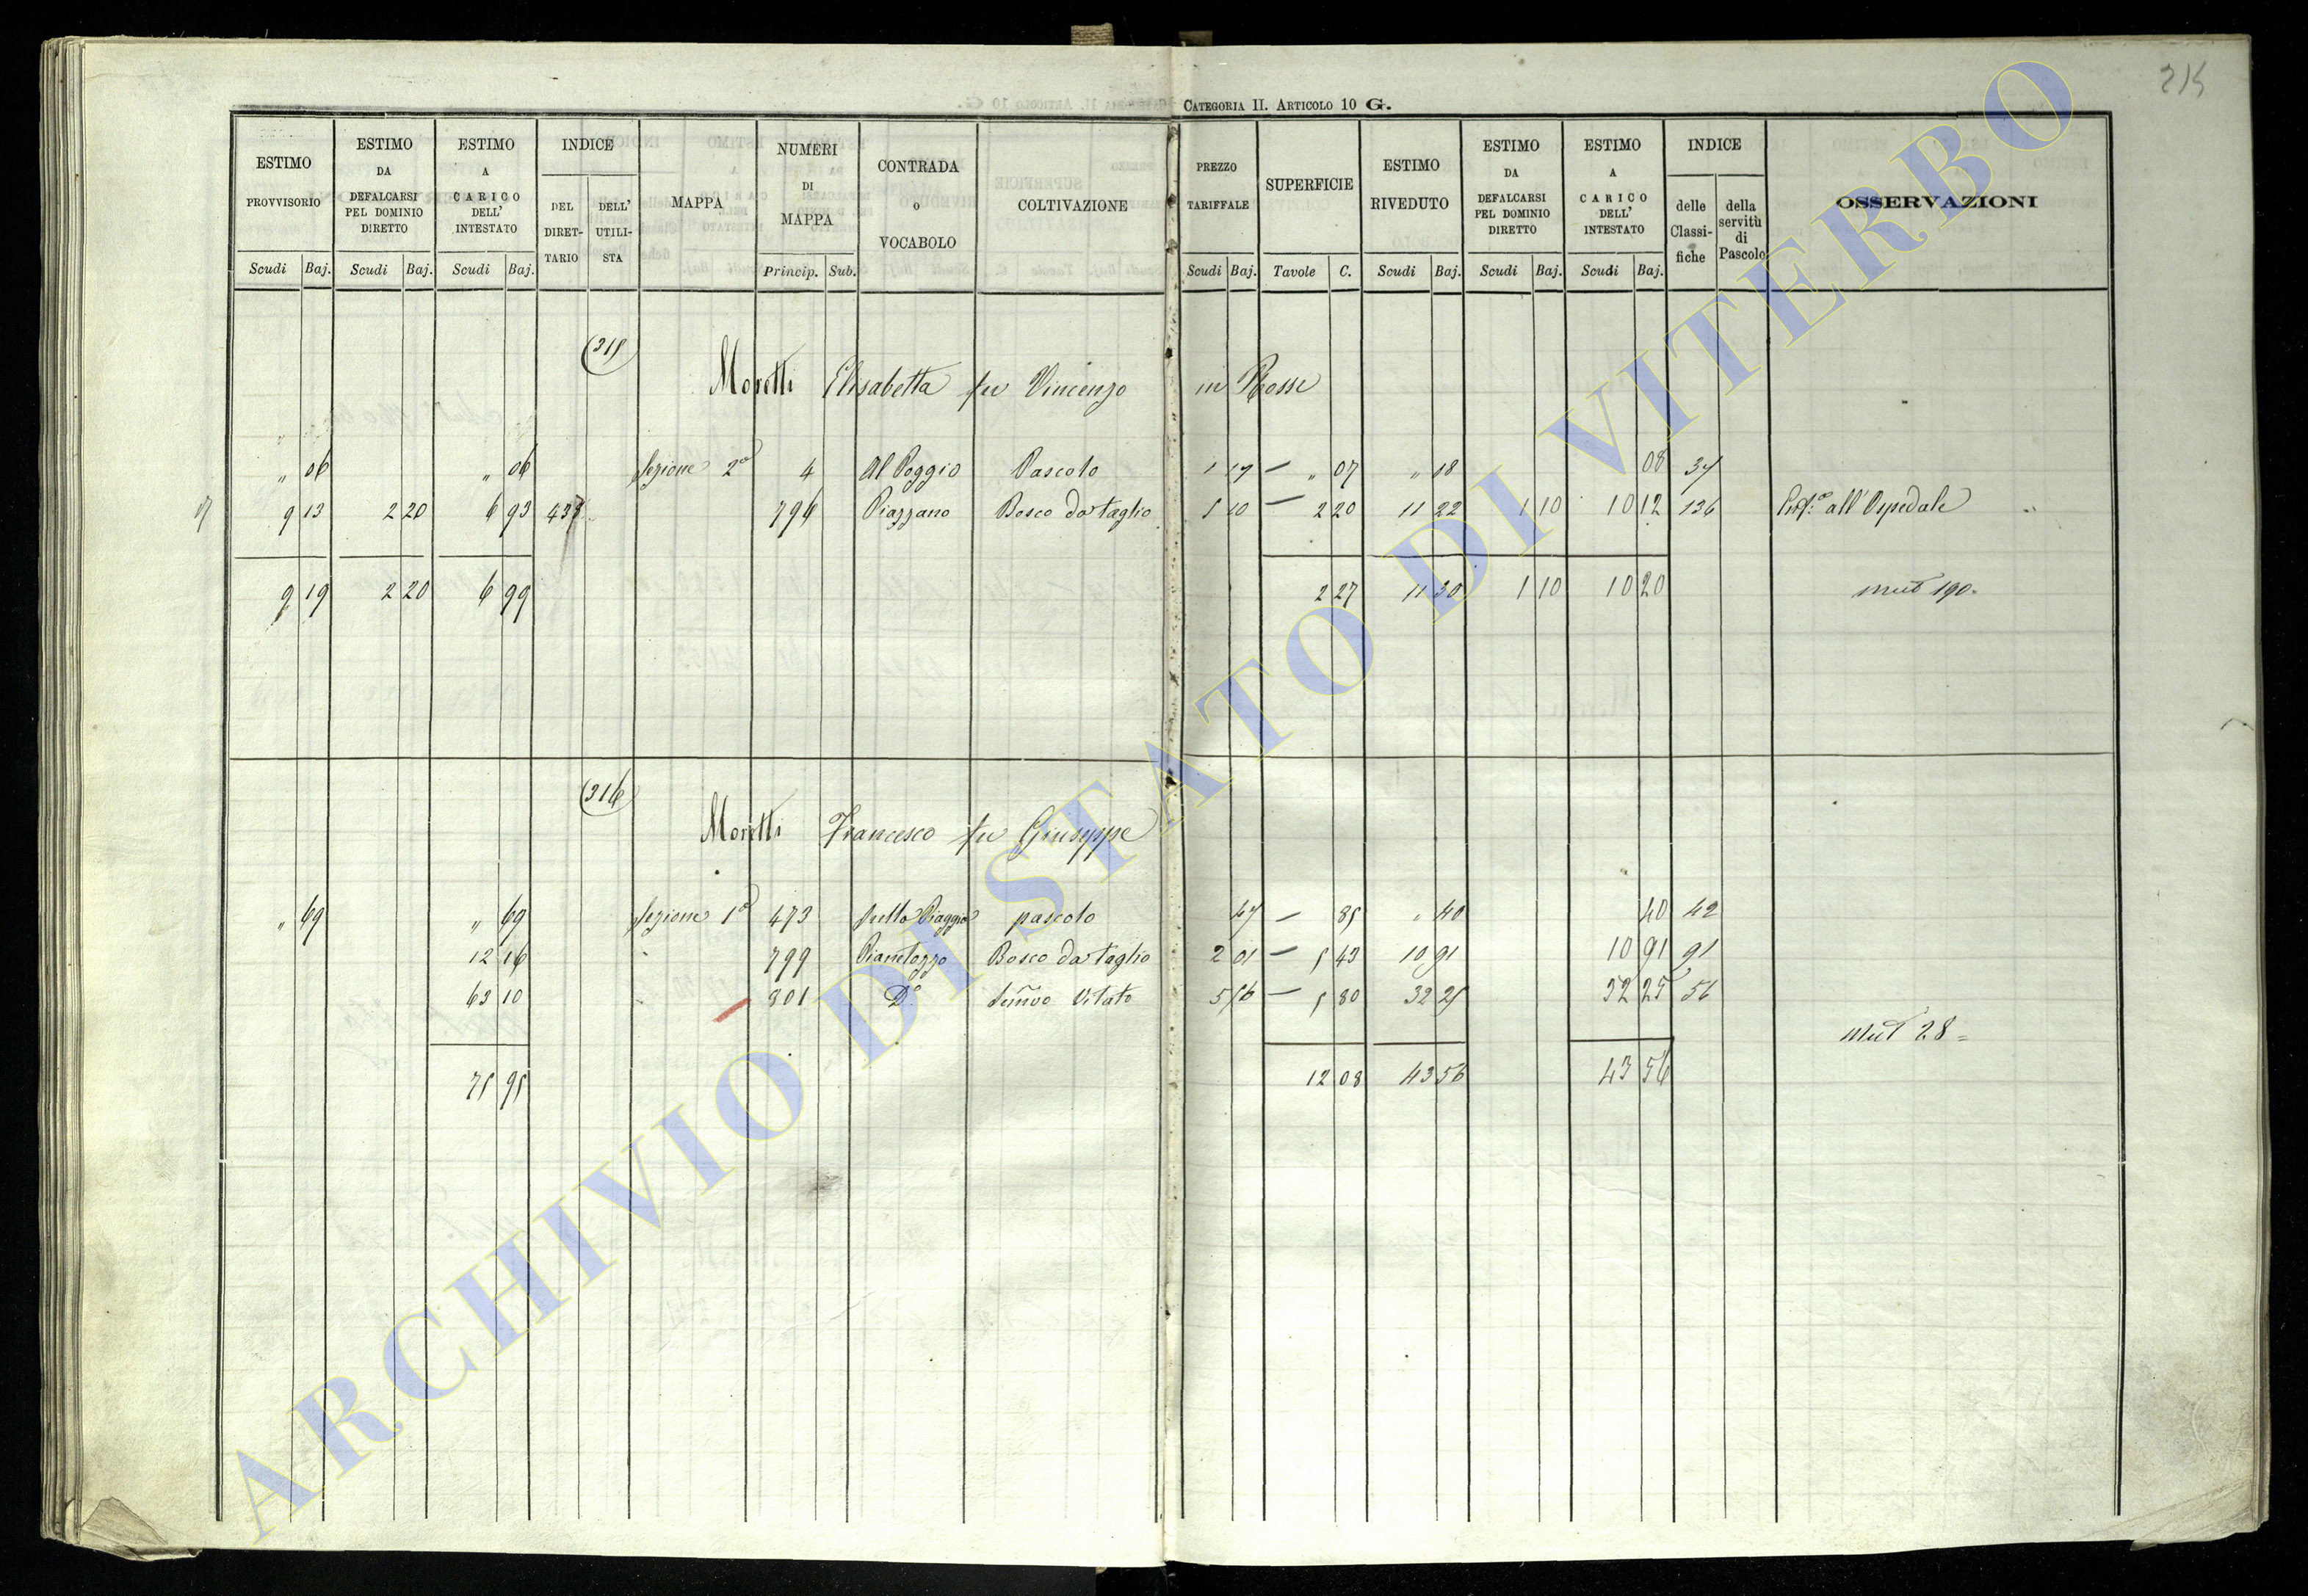 215
CATEGORIA II. ARTICOLO 10 G.
ESTIMO PROVVISORIO Scudi Baj.
ESTIMO DA DEFALCARSI PEL DOMINIO DIRETTO Scudi Baj.
ESTIMO A CARICO DELL' INTESTATO Scudi Baj.
INDICE DEL DIRET-TARIO DELL' UTILI-STA
MAPPA
NUMERI DI MAPPA Princip. Sub.
CONTRADA o VOCABOLO
COLTIVAZIONE
PREZZO TARIFFALE Scudi Baj.
SUPERFICIE Tavole C.
ESTIMO RIVEDUTO Scudi Baj.
ESTIMO DA DEFALCARSI PEL DOMINIO DIRETTO Scudi Baj.
ESTIMO A CARICO DELL' INTESTATO Scudi Baj.
INDICE delle Classi-fiche della servitù di Pascolo
OSSERVAZIONI
(315)
Moretti Elisabetta fu Vincenzo in Rosse
" 06 " 06 Sezione 2a 4 Al Poggio Pascolo 1 17 — " 07 " 18 08 34
9 13 2 20 6 93 437 796 Piazzano Bosco da taglio 5 10 — 2 20 11 22 1 10 10 12 136 all'Ospedale
9 19 2 20 6 99 2 27 11 30 1 10 10 20 mut 190.
(316)
Moretti Francesco fu Giuseppe
" 69 " 69 Sezione 1a 473 Piaggia pascolo 47 — 85 " 40 40 42
12 16 " 799 Pianetozzo Bosco da taglio 2 01 — 5 43 10 91 10 91 91
63 10 " 801 D.o Semivo Vitato 5 56 — 5 80 32 25 32 25 56
mut 28 =
75 95 12 08 43 56 43 56
ARCHIVIO DI STATO DI VITERBO